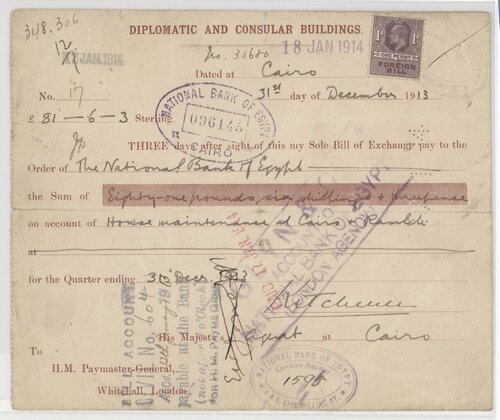 348.306
DIPLOMATIC AND CONSULAR BUILDINGS.
17 JAN 1914
No. 33680
18 JAN 1914
1d 1d
ONE PENNY
FOREIGN BILL
Dated at Cairo
No. 17
31st day of December 1913
£ 81-6-3 Sterling
NATIONAL BANK OF EGYPT
096145
CAIRO
THREE days after sight of this my Sole Bill of Exchange pay to the
Order of The National Bank of Egypt
the Sum of Eighty-one pounds six shillings & threepence
on account of House maintenance at Cairo & Ramleh
at
for the Quarter ending 31 Decr 1913
PAID 17 JAN 1914
NATIONAL BANK OF EGYPT
LONDON AGENCY
Kitchener
His Majesty's Agent at Cairo
Egypt
BILL ACCOUNT
No. 604
payable at the Bank
for H.M. PAYMR GENL
To
H.M. Paymaster-General,
Whitehall, London.
NATIONAL BANK OF EGYPT
London Agency
1595